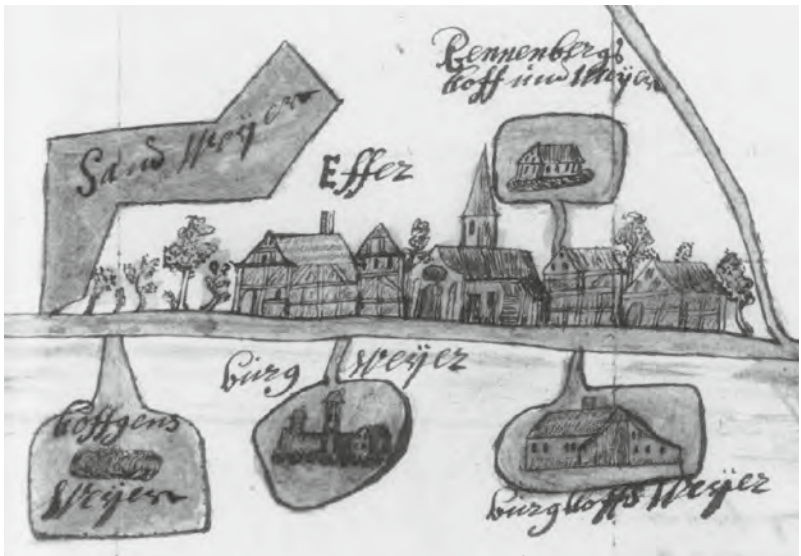 Bennenbergs
hoff und Weÿer
Sand Weÿer
Effer
burg Weÿer
hoffgens
Weÿer
burghoffs Weÿer